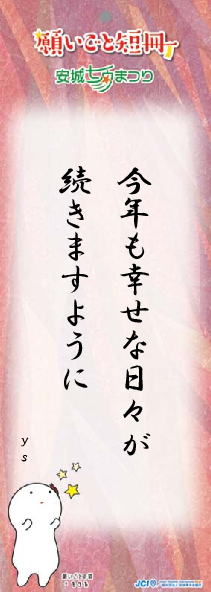 願いごと短冊
安城七夕まつり
今年も幸せな日々が
続きますように
ys
願いごと短冊
JCI